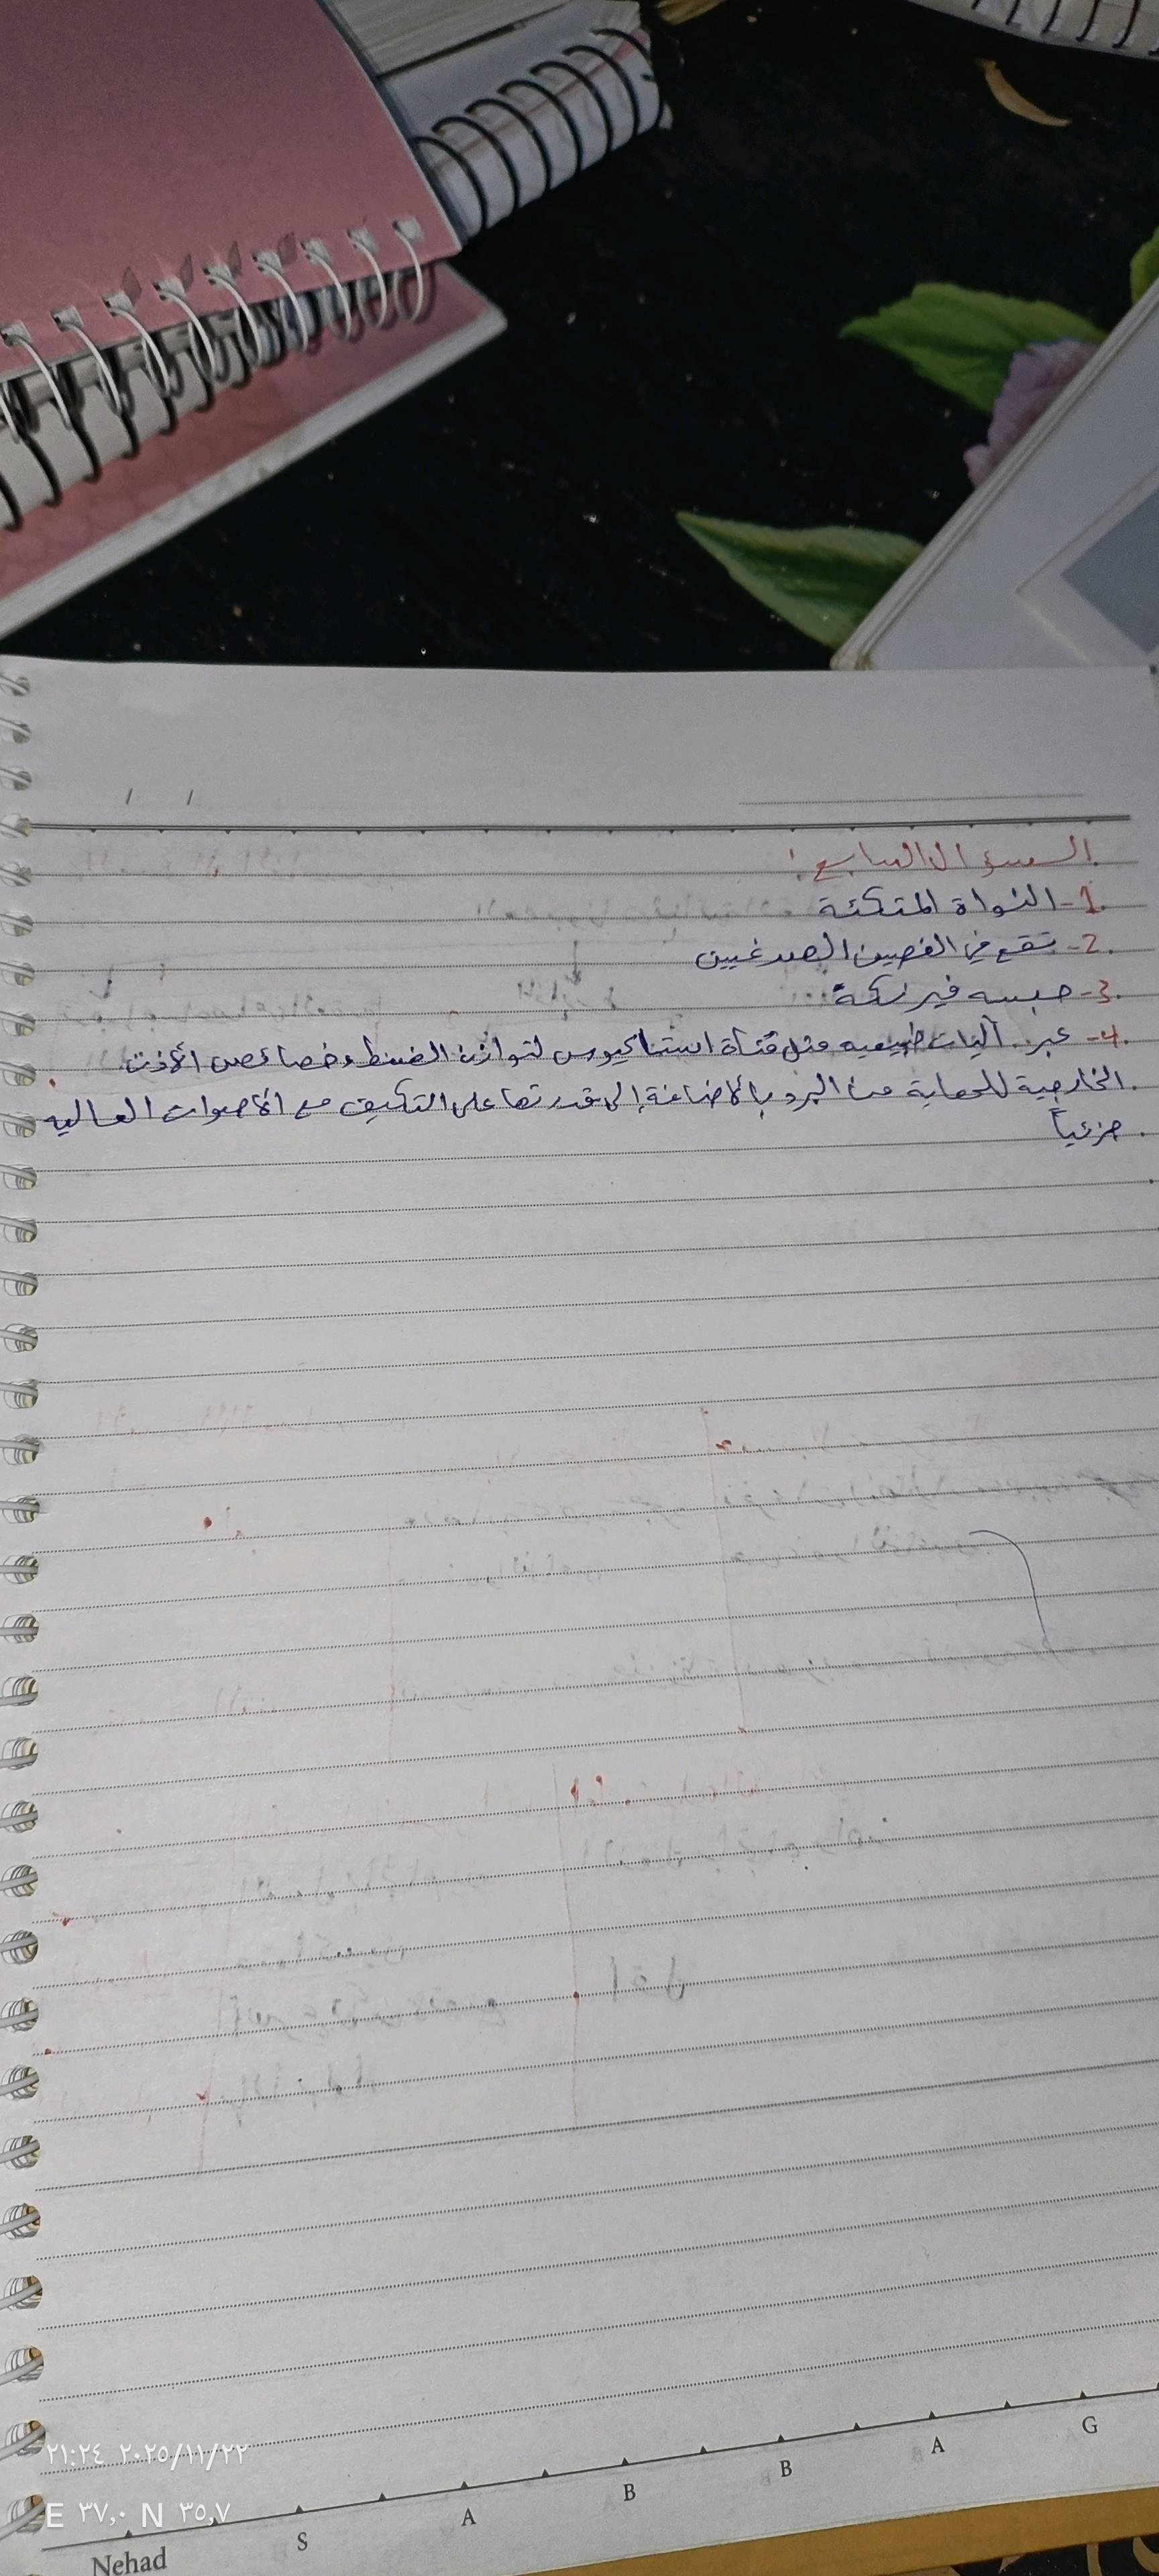 السؤال السابع:
1- النواة المتكئة
2- تقع في الفصين الصدغيين
3- حبسة فيرنكة
4- عبر آليات طبيعيه مثل قناة استاكيوس لتوازن الضغط وخصائص الأذن
الخارجية للحماية من البرد بالأضافة إلى قدرتها على التكيف مع الأصوات العاليه
جزئياً
٢١:٢٤ ٢٠٢٥/١١/٢٢
E ٣٧,٠ N ٣٥,٧
Nehad
S
A
B
B
A
G